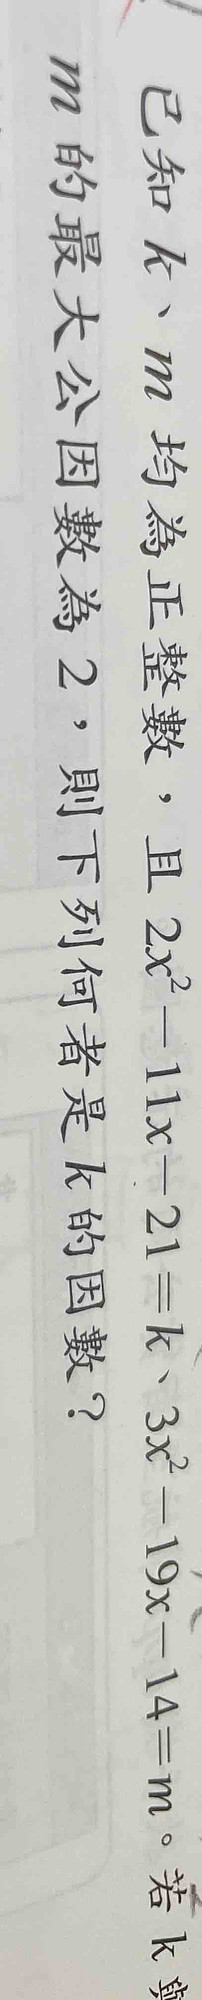 已知 k、m 均為正整數，且 2x²－11x－21＝k、3x²－19x－14＝m。若 k 與
m 的最大公因數為 2，則下列何者是 k 的因數？